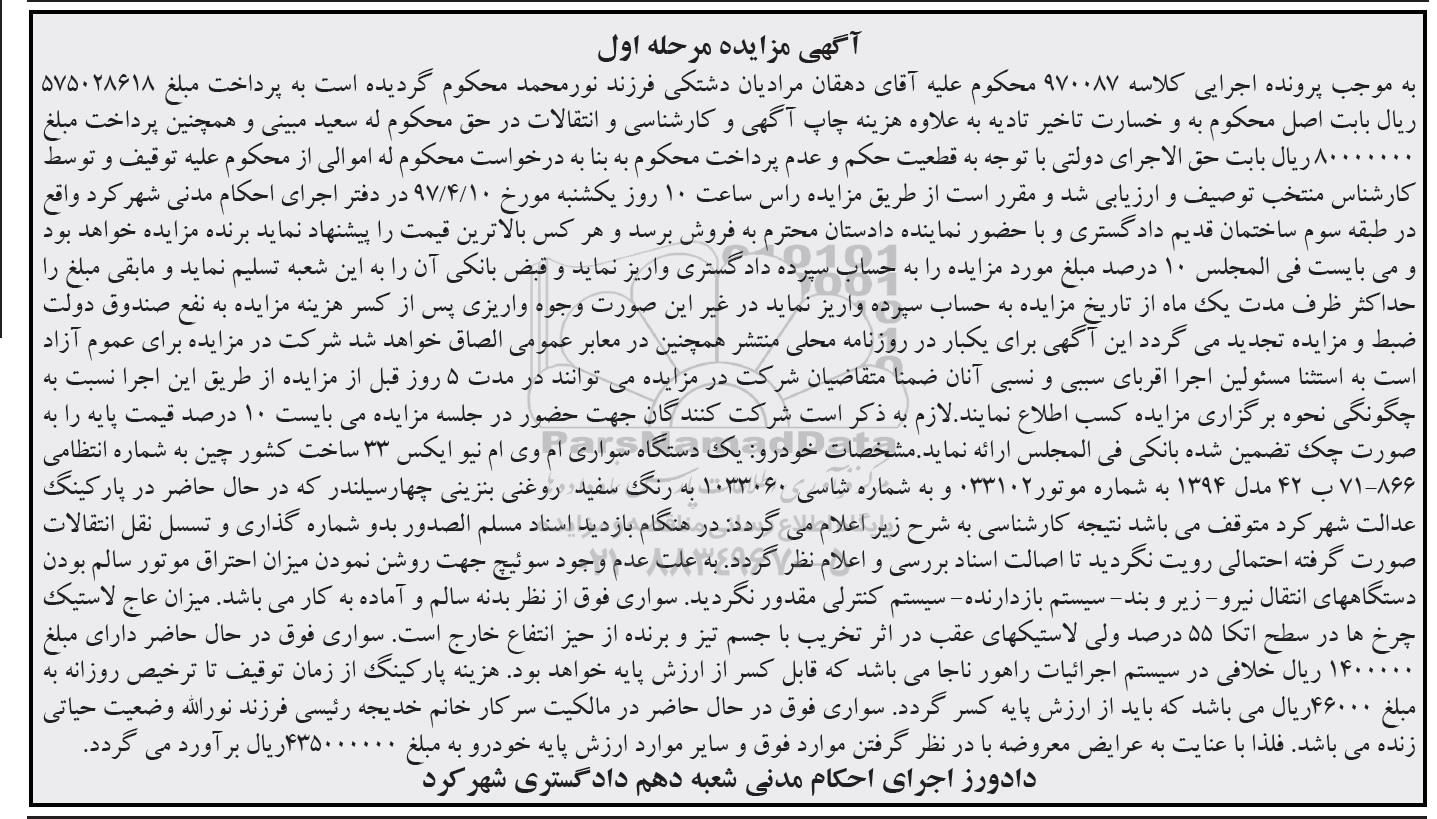 آگهی مزایده مرحله اول
به موجب پرونده اجرایی کلاسه ۹۷۰۰۸۷ محکوم علیه آقای دهقان مرادیان دشتکی فرزند نورمحمد محکوم گردیده است به پرداخت مبلغ ۵۷۵۰۲۸۶۱۸
ریال بابت اصل محکوم به و خسارت تاخیر تادیه به علاوه هزینه چاپ آگهی و کارشناسی و انتقالات در حق محکوم له سعید مبینی و همچنین پرداخت مبلغ
۸۰۰۰۰۰۰۰ ریال بابت حق الاجرای دولتی با توجه به قطعیت حکم و عدم پرداخت محکوم به بنا به درخواست محکوم له اموالی از محکوم علیه توقیف و توسط
کارشناس منتخب توصیف و ارزیابی شد و مقرر است از طریق مزایده راس ساعت ۱۰ روز یکشنبه مورخ ۹۷/۴/۱۰ در دفتر اجرای احکام مدنی شهرکرد واقع
در طبقه سوم ساختمان قدیم دادگستری و با حضور نماینده دادستان محترم به فروش برسد و هر کس بالاترین قیمت را پیشنهاد نماید برنده مزایده خواهد بود
و می بایست فی المجلس ۱۰ درصد مبلغ مورد مزایده را به حساب سپرده دادگستری واریز نماید و قبض بانکی آن را به این شعبه تسلیم نماید و مابقی مبلغ را
حداکثر ظرف مدت یک ماه از تاریخ مزایده به حساب سپرده واریز نماید در غیر این صورت وجوه واریزی پس از کسر هزینه مزایده به نفع صندوق دولت
ضبط و مزایده تجدید می گردد این آگهی برای یکبار در روزنامه محلی منتشر همچنین در معابر عمومی الصاق خواهد شد شرکت در مزایده برای عموم آزاد
است به استثنا مسئولین اجرا اقربای سببی و نسبی آنان ضمنا متقاضیان شرکت در مزایده می توانند در مدت ۵ روز قبل از مزایده از طریق این اجرا نسبت به
چگونگی نحوه برگزاری مزایده کسب اطلاع نمایند.لازم به ذکر است شرکت کنندگان جهت حضور در جلسه مزایده می بایست ۱۰ درصد قیمت پایه را به
صورت چک تضمین شده بانکی فی المجلس ارائه نماید.مشخصات خودرو: یک دستگاه سواری ام وی ام نیو ایکس ۳۳ ساخت کشور چین به شماره انتظامی
۸۶۶-۷۱ ب ۴۲ مدل ۱۳۹۴ به شماره موتور۰۳۳۱۰۲ و به شماره شاسی ۱۰۳۳۰۶۰ به رنگ سفید روغنی بنزینی چهارسیلندر که در حال حاضر در پارکینگ
عدالت شهرکرد متوقف می باشد نتیجه کارشناسی به شرح زیر اعلام می گردد: در هنگام بازدید اسناد مسلم الصدور بدو شماره گذاری و تسسل نقل انتقالات
صورت گرفته احتمالی رویت نگردید تا اصالت اسناد بررسی و اعلام نظر گردد. به علت عدم وجود سوئیچ جهت روشن نمودن میزان احتراق موتور سالم بودن
دستگاههای انتقال نیرو- زیر و بند- سیستم بازدارنده- سیستم کنترلی مقدور نگردید. سواری فوق از نظر بدنه سالم و آماده به کار می باشد. میزان عاج لاستیک
چرخ ها در سطح اتکا ۵۵ درصد ولی لاستیکهای عقب در اثر تخریب با جسم تیز و برنده از حیز انتفاع خارج است. سواری فوق در حال حاضر دارای مبلغ
۱۴۰۰۰۰۰ ریال خلافی در سیستم اجرائیات راهور ناجا می باشد که قابل کسر از ارزش پایه خواهد بود. هزینه پارکینگ از زمان توقیف تا ترخیص روزانه به
مبلغ ۴۶۰۰۰ریال می باشد که باید از ارزش پایه کسر گردد. سواری فوق در حال حاضر در مالکیت سرکار خانم خدیجه رئیسی فرزند نورالله وضعیت حیاتی
زنده می باشد. فلذا با عنایت به عرایض معروضه با در نظر گرفتن موارد فوق و سایر موارد ارزش پایه خودرو به مبلغ ۴۳۵۰۰۰۰۰۰ریال برآورد می گردد.
دادورز اجرای احکام مدنی شعبه دهم دادگستری شهرکرد
ParsNamadData